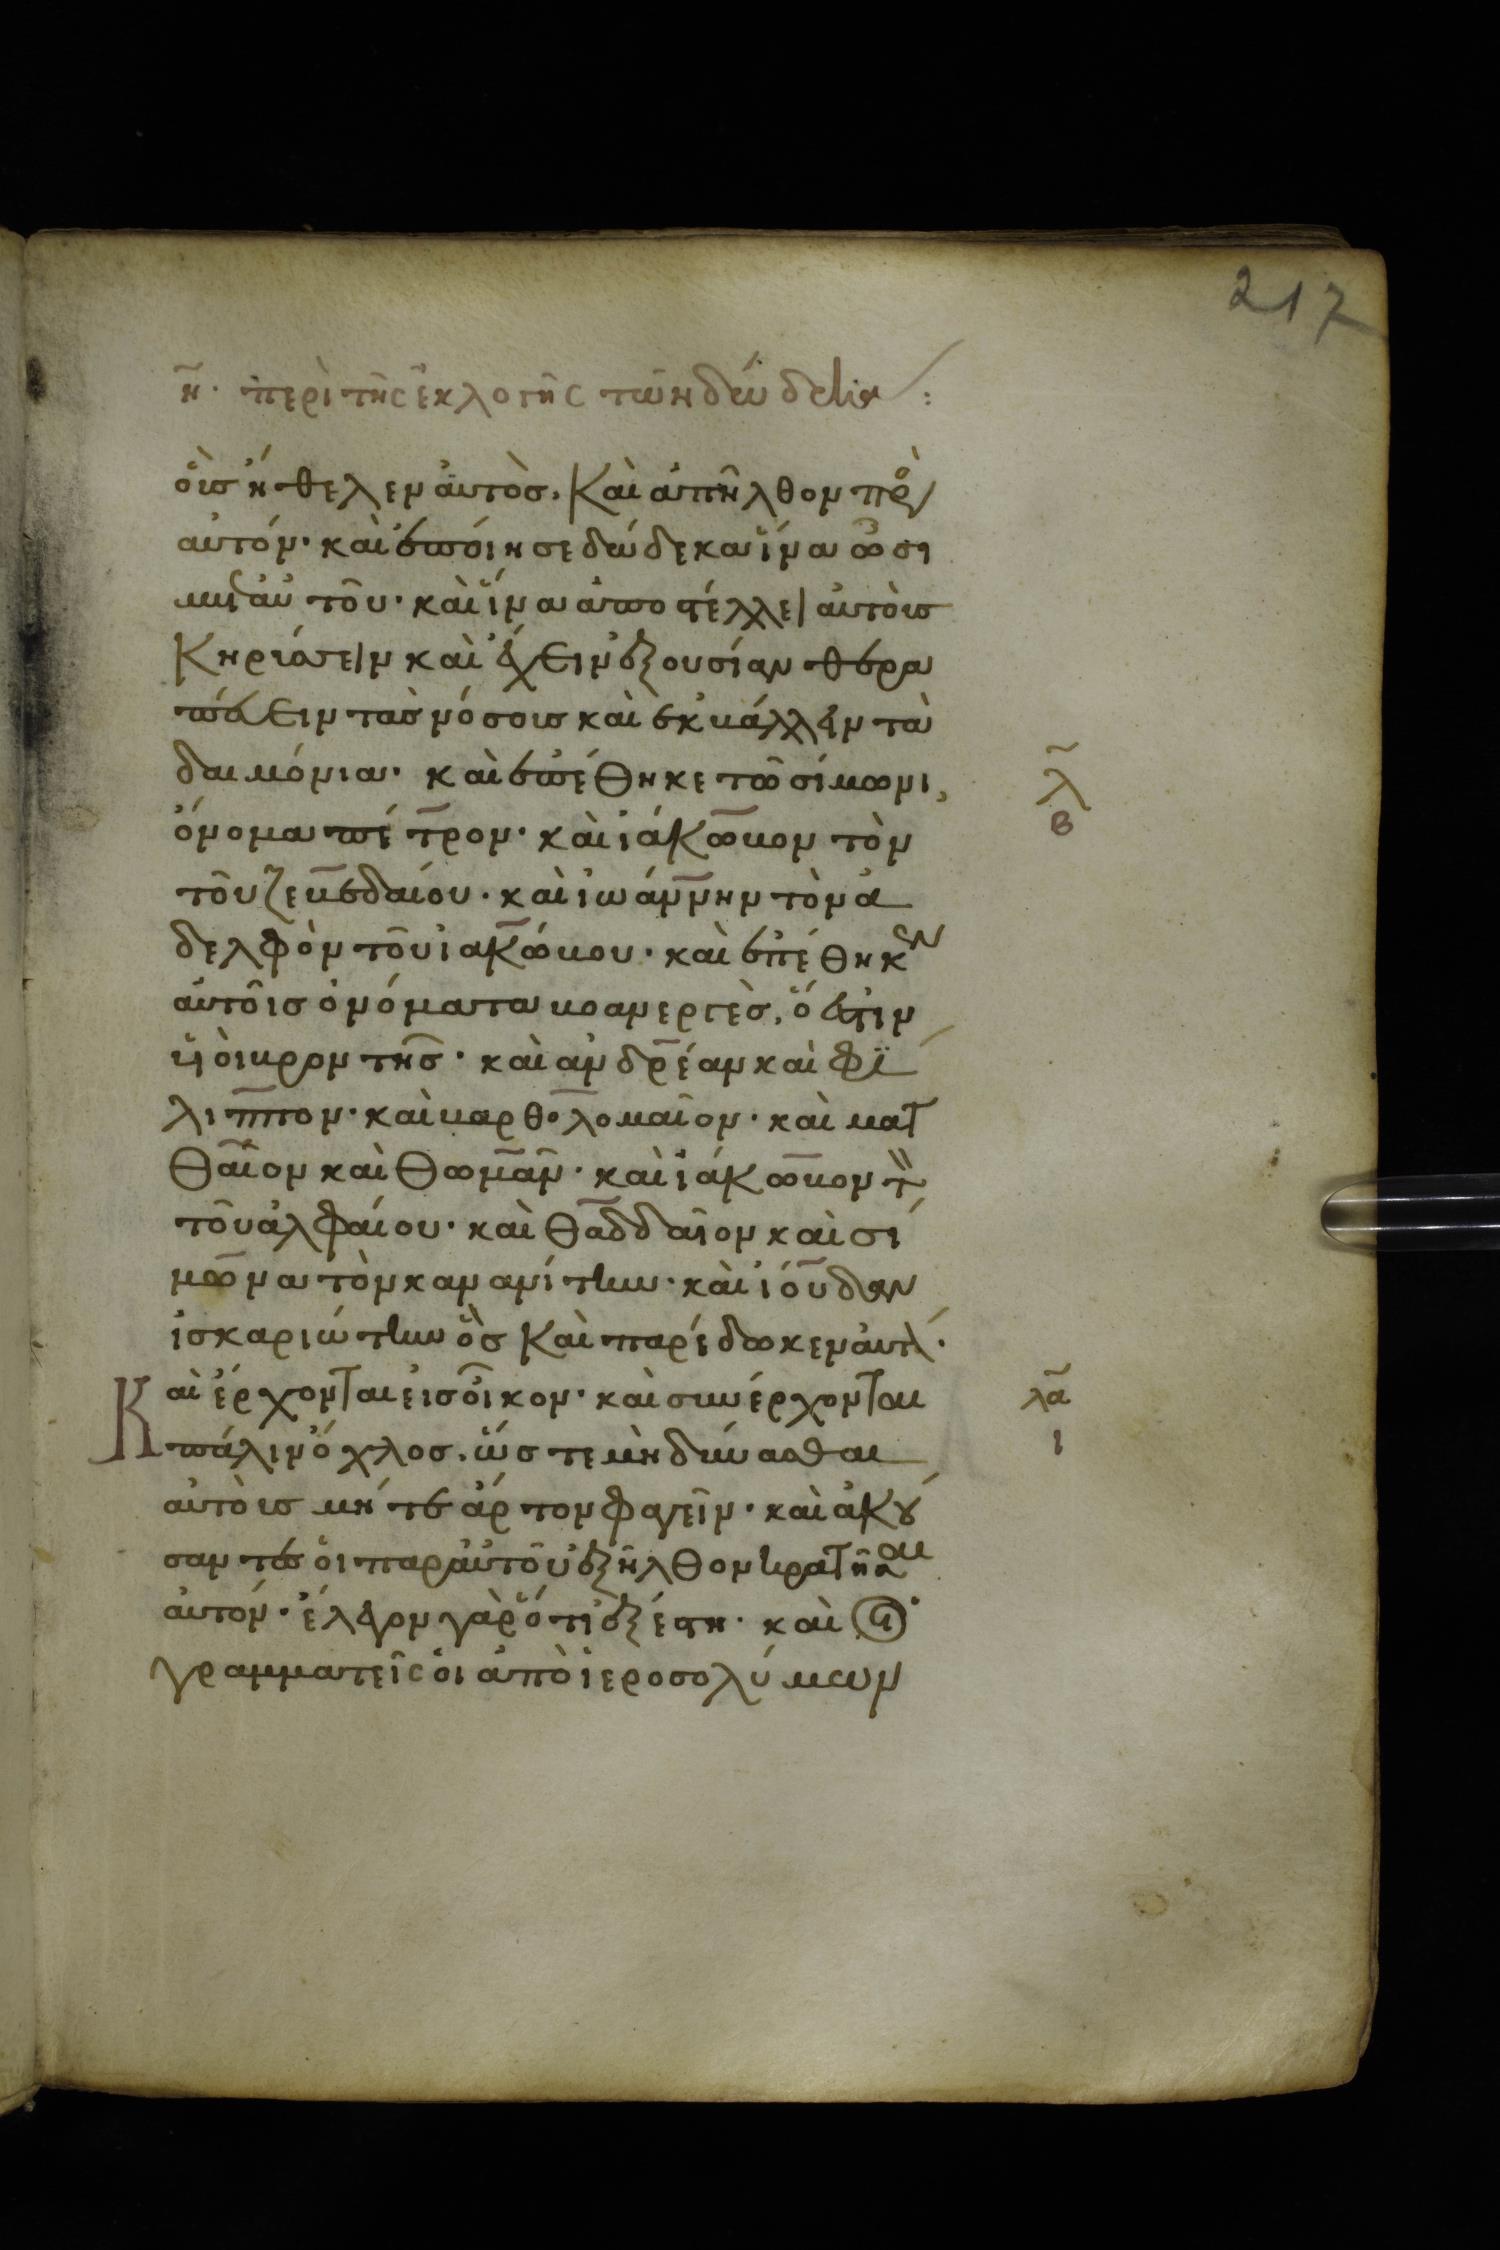 217
η̅. περὶ τῆς ἐκλογῆς τῶν δώδεκα :
οὓς ἤθελεν αὐτὸς, καὶ ἀπῆλθον πρὸς
αὐτόν. καὶ ἐποίησε δώδεκα ἵνα ὦσι
μετ αὐτοῦ. καὶ ἵνα ἀποστέλλει αὐτοὺς
κηρύσσειν καὶ ἔχειν ἐξουσίαν θερα
πεύειν τὰς νόσους καὶ ἐκβάλλειν τὰ
δαιμόνια. καὶ ἐπέθηκε τῶ σίμωνι,
λ̅
β
ὄνομα πέτρον. καὶ ἰάκωβον τὸν
τοῦ ζεβεδαίου. καὶ ἰωάννην τὸν ἀ
δελφὸν τοῦ ἰακώβου. καὶ ἐπέθηκεν
αὐτοῖς ὀνόματα βοανεργὲς, ὅ ἐστιν
υἱοὶ βροντῆς. καὶ ἀνδρέαν καὶ φί
λιππον. καὶ βαρθολομαῖον. καὶ ματ
θαῖον καὶ θωμᾶν. καὶ ἰάκωβον τὸν
τοῦ ἀλφαίου. καὶ θαδδαῖον καὶ σί
μωνα τὸν κανανίτην. καὶ ἰούδαν
ἰσκαριώτην ὃς καὶ παρέδωκεν αὐτόν.
Καὶ ἔρχονται εἰς οἶκον. καὶ συνέρχονται
λα̅
ι
πάλιν ὄχλος, ὥστε μὴ δύνασθαι
αὐτοὺς μήτε ἄρτον φαγεῖν. καὶ ἀκού
σαντες οἱ παρ αὐτοῦ ἐξῆλθον κρατῆσαι
αὐτόν. ἔλεγον γὰρ ὅτι ἐξέστη. καὶ οἱ
γραμματεῖς οἱ ἀπὸ ἱεροσολύμων